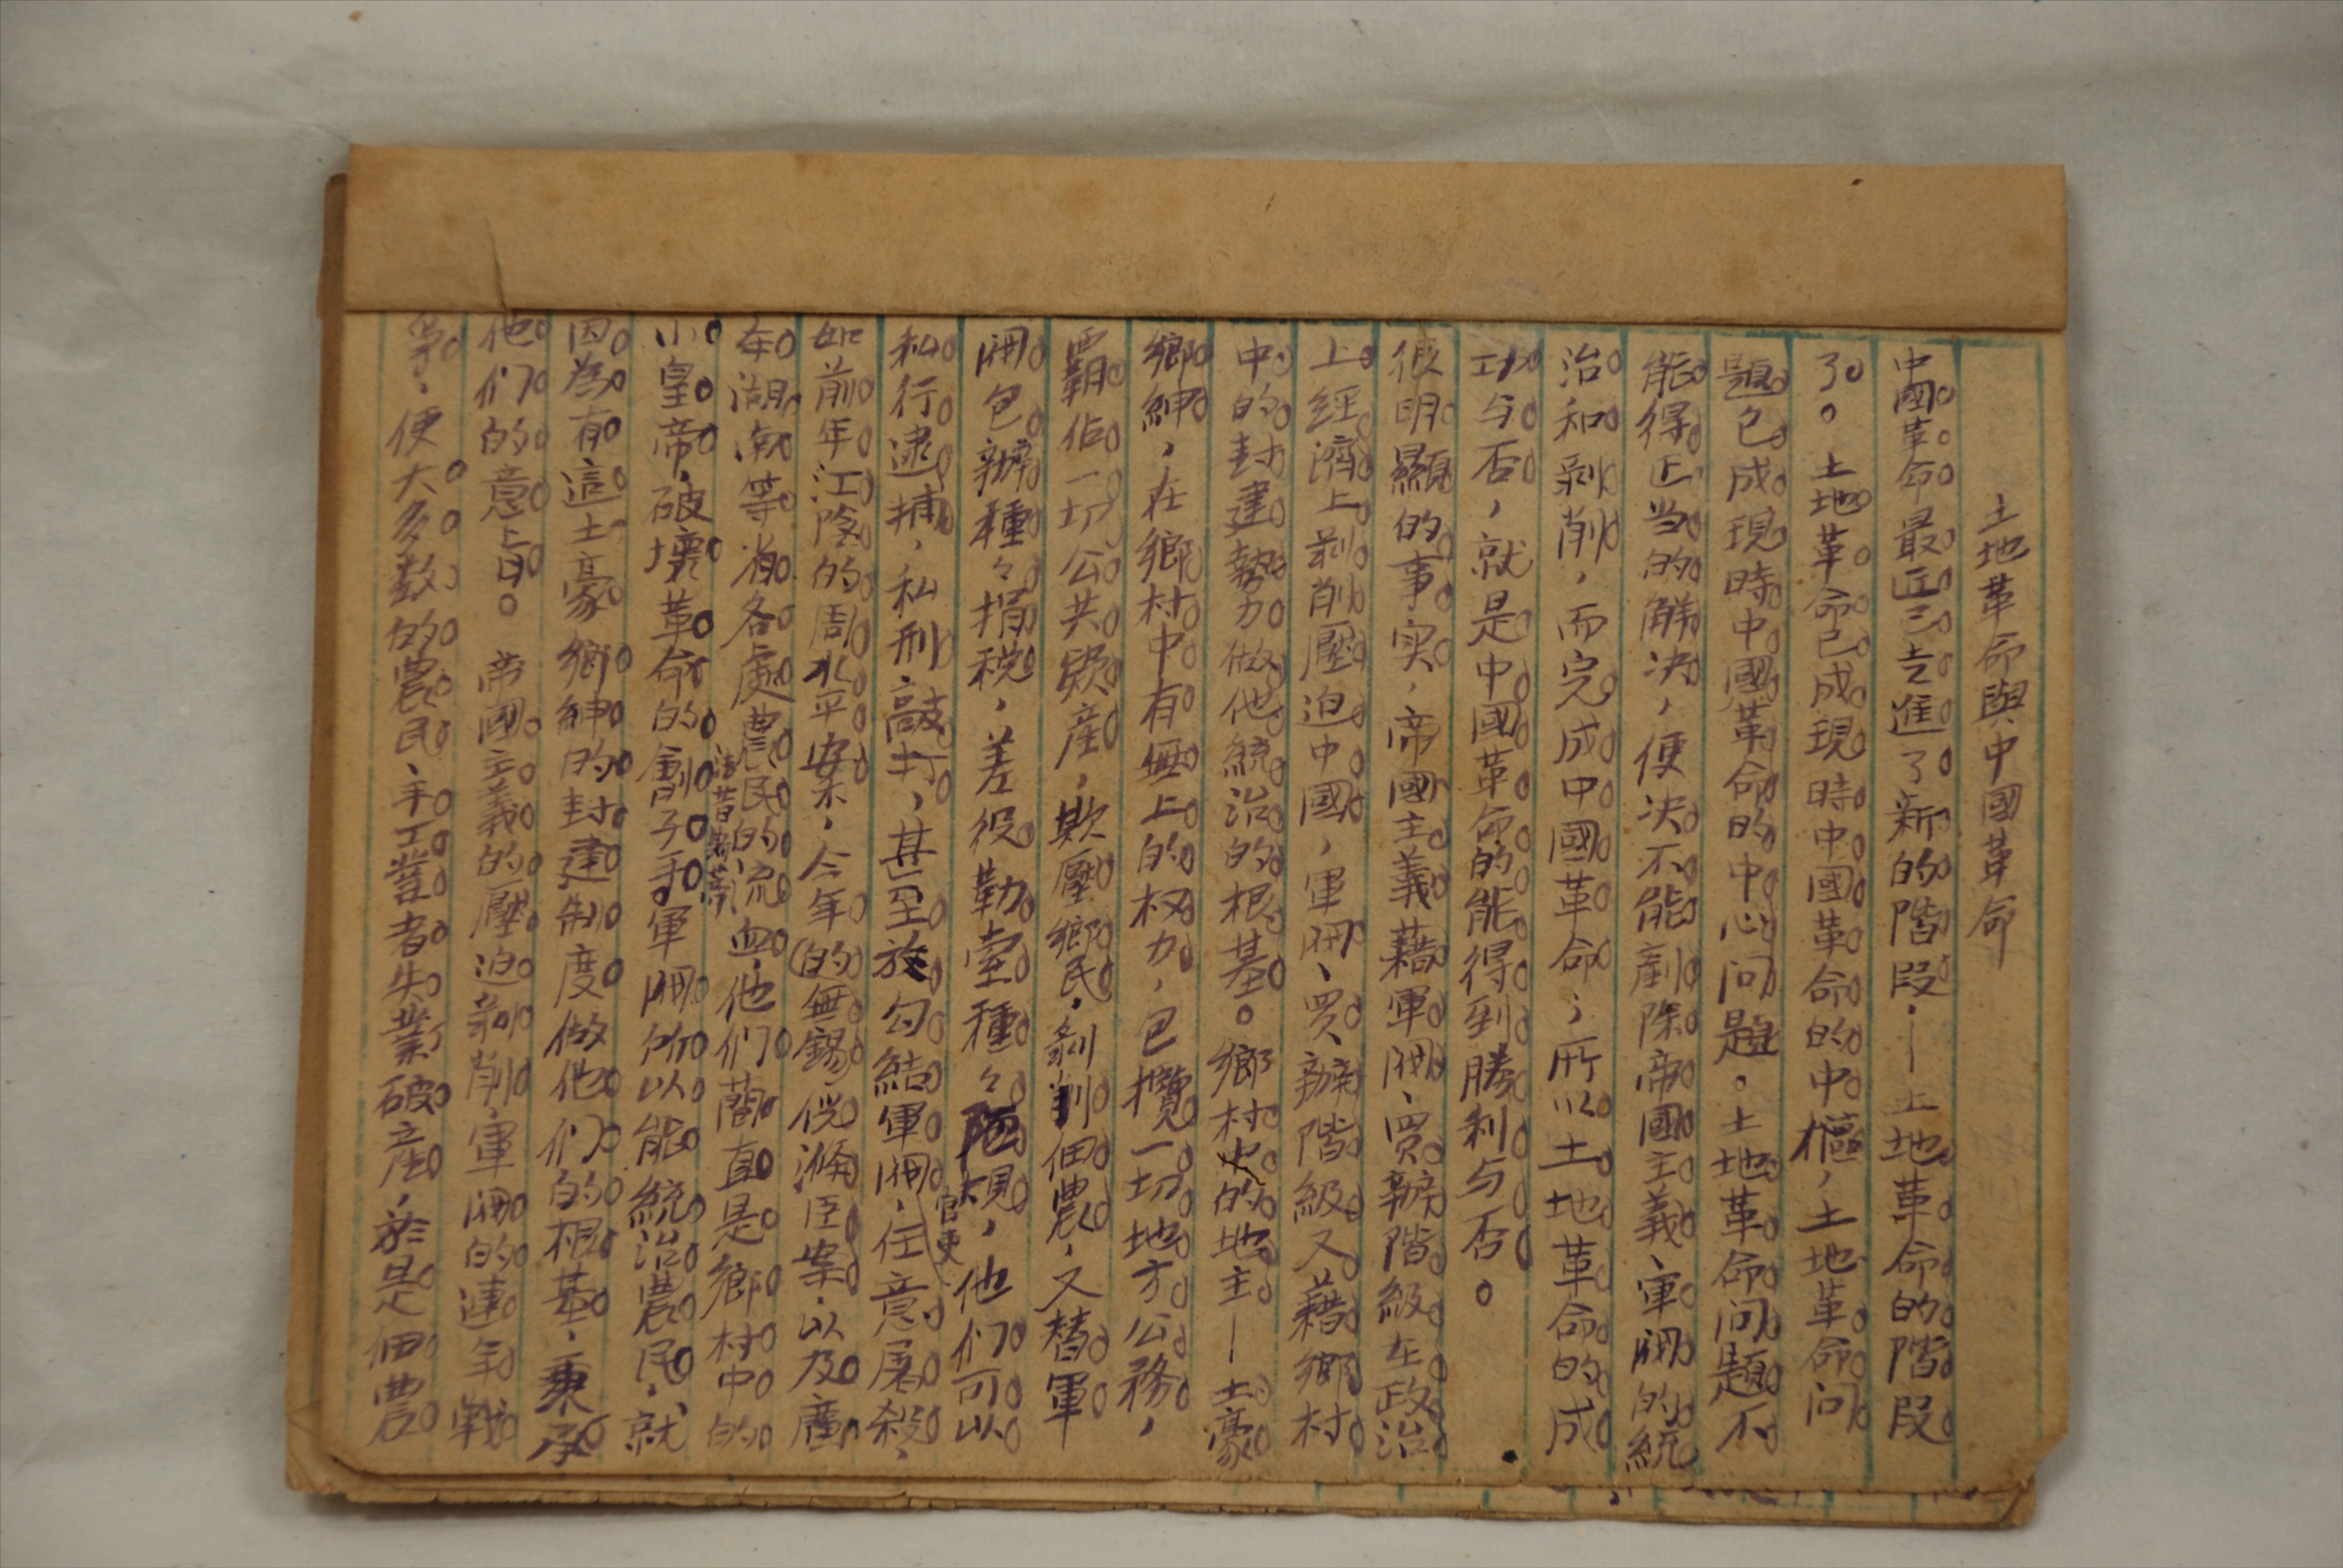 土地革命與中國革命
中國革命最近已走進了新的階段，—土地革命的階段
了。土地革命已成現時中國革命的中樞，土地革命问
題已成現時中國革命的中心问題。土地革命问題不
能得正当的解决，便决不能剷除帝國主義、軍閥的統
治和剥削，而完成中國革命；所以土地革命的成
功与否，就是中國革命的能得到勝利与否。
很明顯的事实，帝國主義藉軍閥、買辦階級在政治
上經濟上剥削壓迫中國，軍閥、買辦階級又藉鄉村
中的封建勢力做他統治的根基。鄉村的地主—土豪
鄉紳，在鄉村中有無上的权力，包攬一切地方公務，
霸佔一切公共欵産，欺壓鄉民，剥削佃農，又替軍
閥包辦種々捐税，差役勒索種々陋規，他們可以
私行逮捕，私刑敲打，甚至於勾結軍閥、官吏任意屠殺，
如前年江陰的周水平案，今年(的)無錫倪滌臣案，以及廣
在湖南等省各處農民的流血，他們簡直是鄉村中的
小皇帝，破壞革命的劊子手。軍閥所以能統治農民，就
因為有這土豪鄉紳的封建制度做他們的根基，秉承
他們的意旨。帝國主義的壓迫剥削，軍閥的連年戰
爭，便大多数的農民、手工業者失業破産，於是佃農